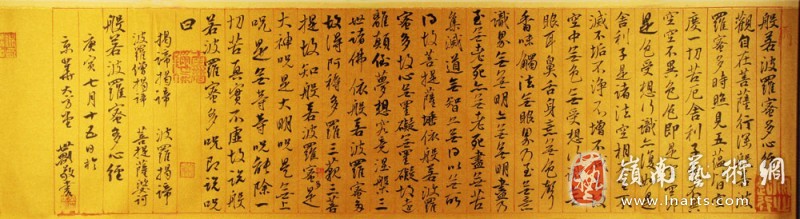 般若波羅蜜多心
觀自在菩薩行深
羅蜜多時照見五蘊皆
度一切苦厄舍利子
空空不異色色即是
是色受想行識亦復
舍利子是諸法空相
滅不垢不淨不增不
空中無色無受想
眼耳鼻舌身意無色聲
香味觸法無眼界乃至無意
識界無無明亦無無明盡乃
至無老死亦無老死盡無苦
集滅道無智亦無得以無所
得故菩提薩埵依般若波羅
蜜多故心無罣礙無罣礙故
離顛倒夢想究竟涅槃三
世諸佛依般若波羅蜜多
故得阿耨多羅三藐三菩
提故知般若波羅蜜多是
大神咒是大明咒是無上
咒是無等等咒能除一
切苦真實不虛故說般
若波羅蜜多咒即說咒
曰
揭諦揭諦 波羅揭諦
波羅僧揭諦 菩提薩婆訶
般若波羅蜜多心經
庚寅七月十五日於
京華大方 敬書
嶺南藝術網
www.lnarts.com